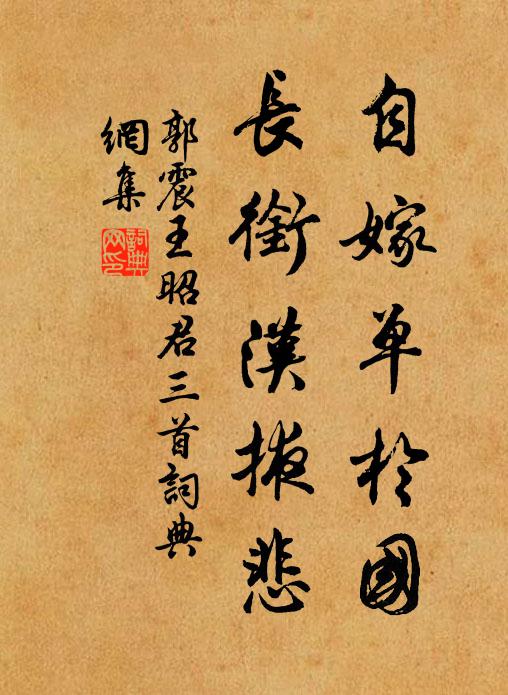 自嫁单於國
長銜漢掖悲
郭震王昭君三首詞典
網集
詞典網印